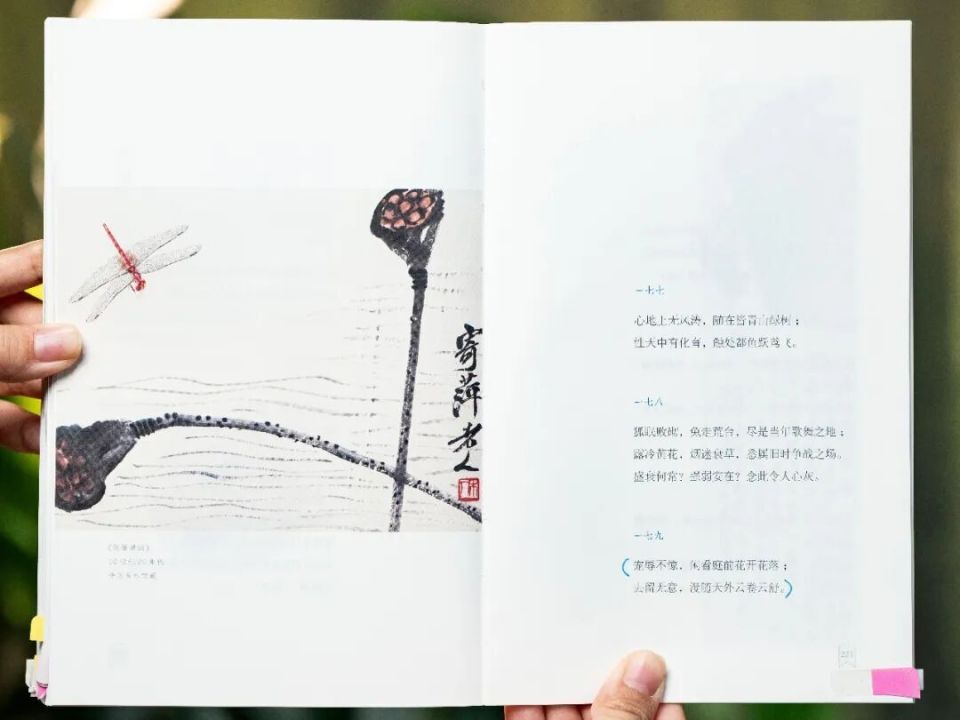 寄萍老人
一七七
心地上无风涛，随在皆青山绿树；
性天中有化育，触处都鱼跃鸢飞。
一七八
狐眠败砌，兔走荒台，尽是当年歌舞之地；
露冷黄花，烟迷衰草，悉属旧时争战之场。
盛衰何常？强弱安在？念此令人心灰。
一七九
宠辱不惊，闲看庭前花开花落；
去留无意，漫随天外云卷云舒。
221